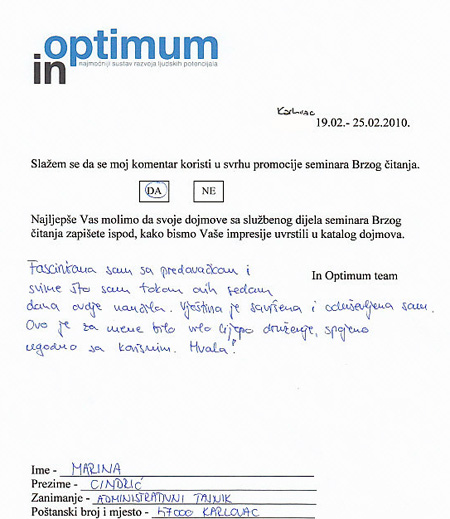 in optimum
najmoćniji sustav razvoja ljudskih potencijala
Karlovac
19.02.- 25.02.2010.
Slažem se da se moj komentar koristi u svrhu promocije seminara Brzog čitanja.
DA NE
Najljepše Vas molimo da svoje dojmove sa službenog dijela seminara Brzog
čitanja zapišete ispod, kako bismo Vaše impresije uvrstili u katalog dojmova.
In Optimum team
Fascinirana sam sa predavačkom i
svime što sam tokom ovih sedam
dana ovdje naučila. Vještina je savršena i oduševljena sam.
Ovo je za mene bilo vrlo lijepo druženje, spojeno
ugodno sa korisnim. Hvala!
Ime - MARINA
Prezime - CINDRIĆ
Zanimanje - ADMINISTRATIVNI TAJNIK
Poštanski broj i mjesto - 47000 KARLOVAC